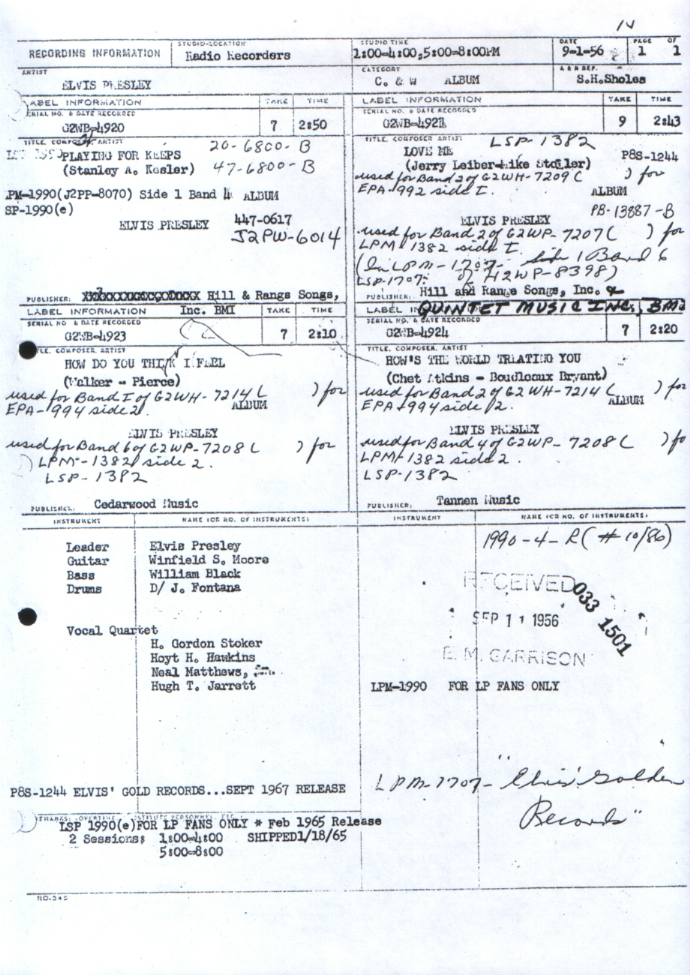 14
RECORDING INFORMATION
STUDIO-LOCATION
Radio Recorders
STUDIO TIME
1:00-4:00,5:00-8:00PM
DATE
9-1-56
PAGE 1 OF 1
ARTIST
ELVIS PRESLEY
CATEGORY
C. & W ALBUM
A & R REP.
S.H.Sholes
LABEL INFORMATION TAKE TIME
SERIAL NO. & DATE RECORDED
G2WB-4920 7 2:50
TITLE, COMPOSER, ARTIST
20-6800-B
PLAYING FOR KEEPS
47-6800-B
(Stanley A. Kesler)
LPM-1990(J2PP-8070) Side 1 Band 4 ALBUM
SP-1990(e)
447-0617
ELVIS PRESLEY
J2PW-6014
PUBLISHER: Hill & Range Songs,
Inc. BMI
LABEL INFORMATION TAKE TIME
SERIAL NO. & DATE RECORDED
G2WB-4921 9 2:43
TITLE, COMPOSER ARTIST
LSP-1382
LOVE ME
P8S-1244
(Jerry Leiber-Mike Stoller)
used for Band 2 of G2WH-7209 ( ) for
EPA-992 side I.
ALBUM
PB-13887-B
ELVIS PRESLEY
used for Band 2 of G2WP-7207 ( ) for
LPM 1382 side I
(In LPM-1707- side 1 Band 6
LSP-1707. of H2WP-8398)
PUBLISHER: Hill and Range Songs, Inc. &
QUINTET MUSIC INC. BMI
LABEL INFORMATION TAKE TIME
SERIAL NO. & DATE RECORDED
G2WB-4923 7 2:10
TITLE, COMPOSER, ARTIST
HOW DO YOU THINK I FEEL
(Walker - Pierce)
used for Band I of G2WH-7214 ( ) for
EPA-994 side 2.
ALBUM
ELVIS PRESLEY
used for Band 6 of G2WP-7208 ( ) for
LPM-1382 side 2.
LSP-1382
PUBLISHER: Cedarwood Music
LABEL IN
SERIAL NO. & DATE RECORDED
G2WB-4924 7 2:20
TITLE, COMPOSER, ARTIST
HOW'S THE WORLD TREATING YOU
(Chet Atkins - Boudleaux Bryant)
used for Band 2 of G2WH-7214 ( ) for
EPA-994 side 2.
ALBUM
ELVIS PRESLEY
used for Band 4 of G2WP-7208 ( ) fo
LPM-1382 side 2.
LSP-1382
PUBLISHER: Tannen Music
INSTRUMENT NAME (OR NO. OF INSTRUMENTS)
Leader Elvis Presley
Guitar Winfield S. Moore
Bass William Black
Drums D/ J. Fontana
Vocal Quartet
H. Gordon Stoker
Hoyt H. Hawkins
Neal Matthews,
Hugh T. Jarrett
INSTRUMENT NAME (OR NO. OF INSTRUMENTS)
1990-4-R (# 10/86)
RECEIVED
SEP 11 1956
E. M. GARRISON
033 1501
LPM-1990 FOR LP FANS ONLY
P8S-1244 ELVIS' GOLD RECORDS...SEPT 1967 RELEASE
LPM-1707- "Elvis' Golden
Records"
LSP 1990(e)FOR LP FANS ONLY * Feb 1965 Release
2 Sessions: 1:00-4:00 SHIPPED1/18/65
5:00-8:00